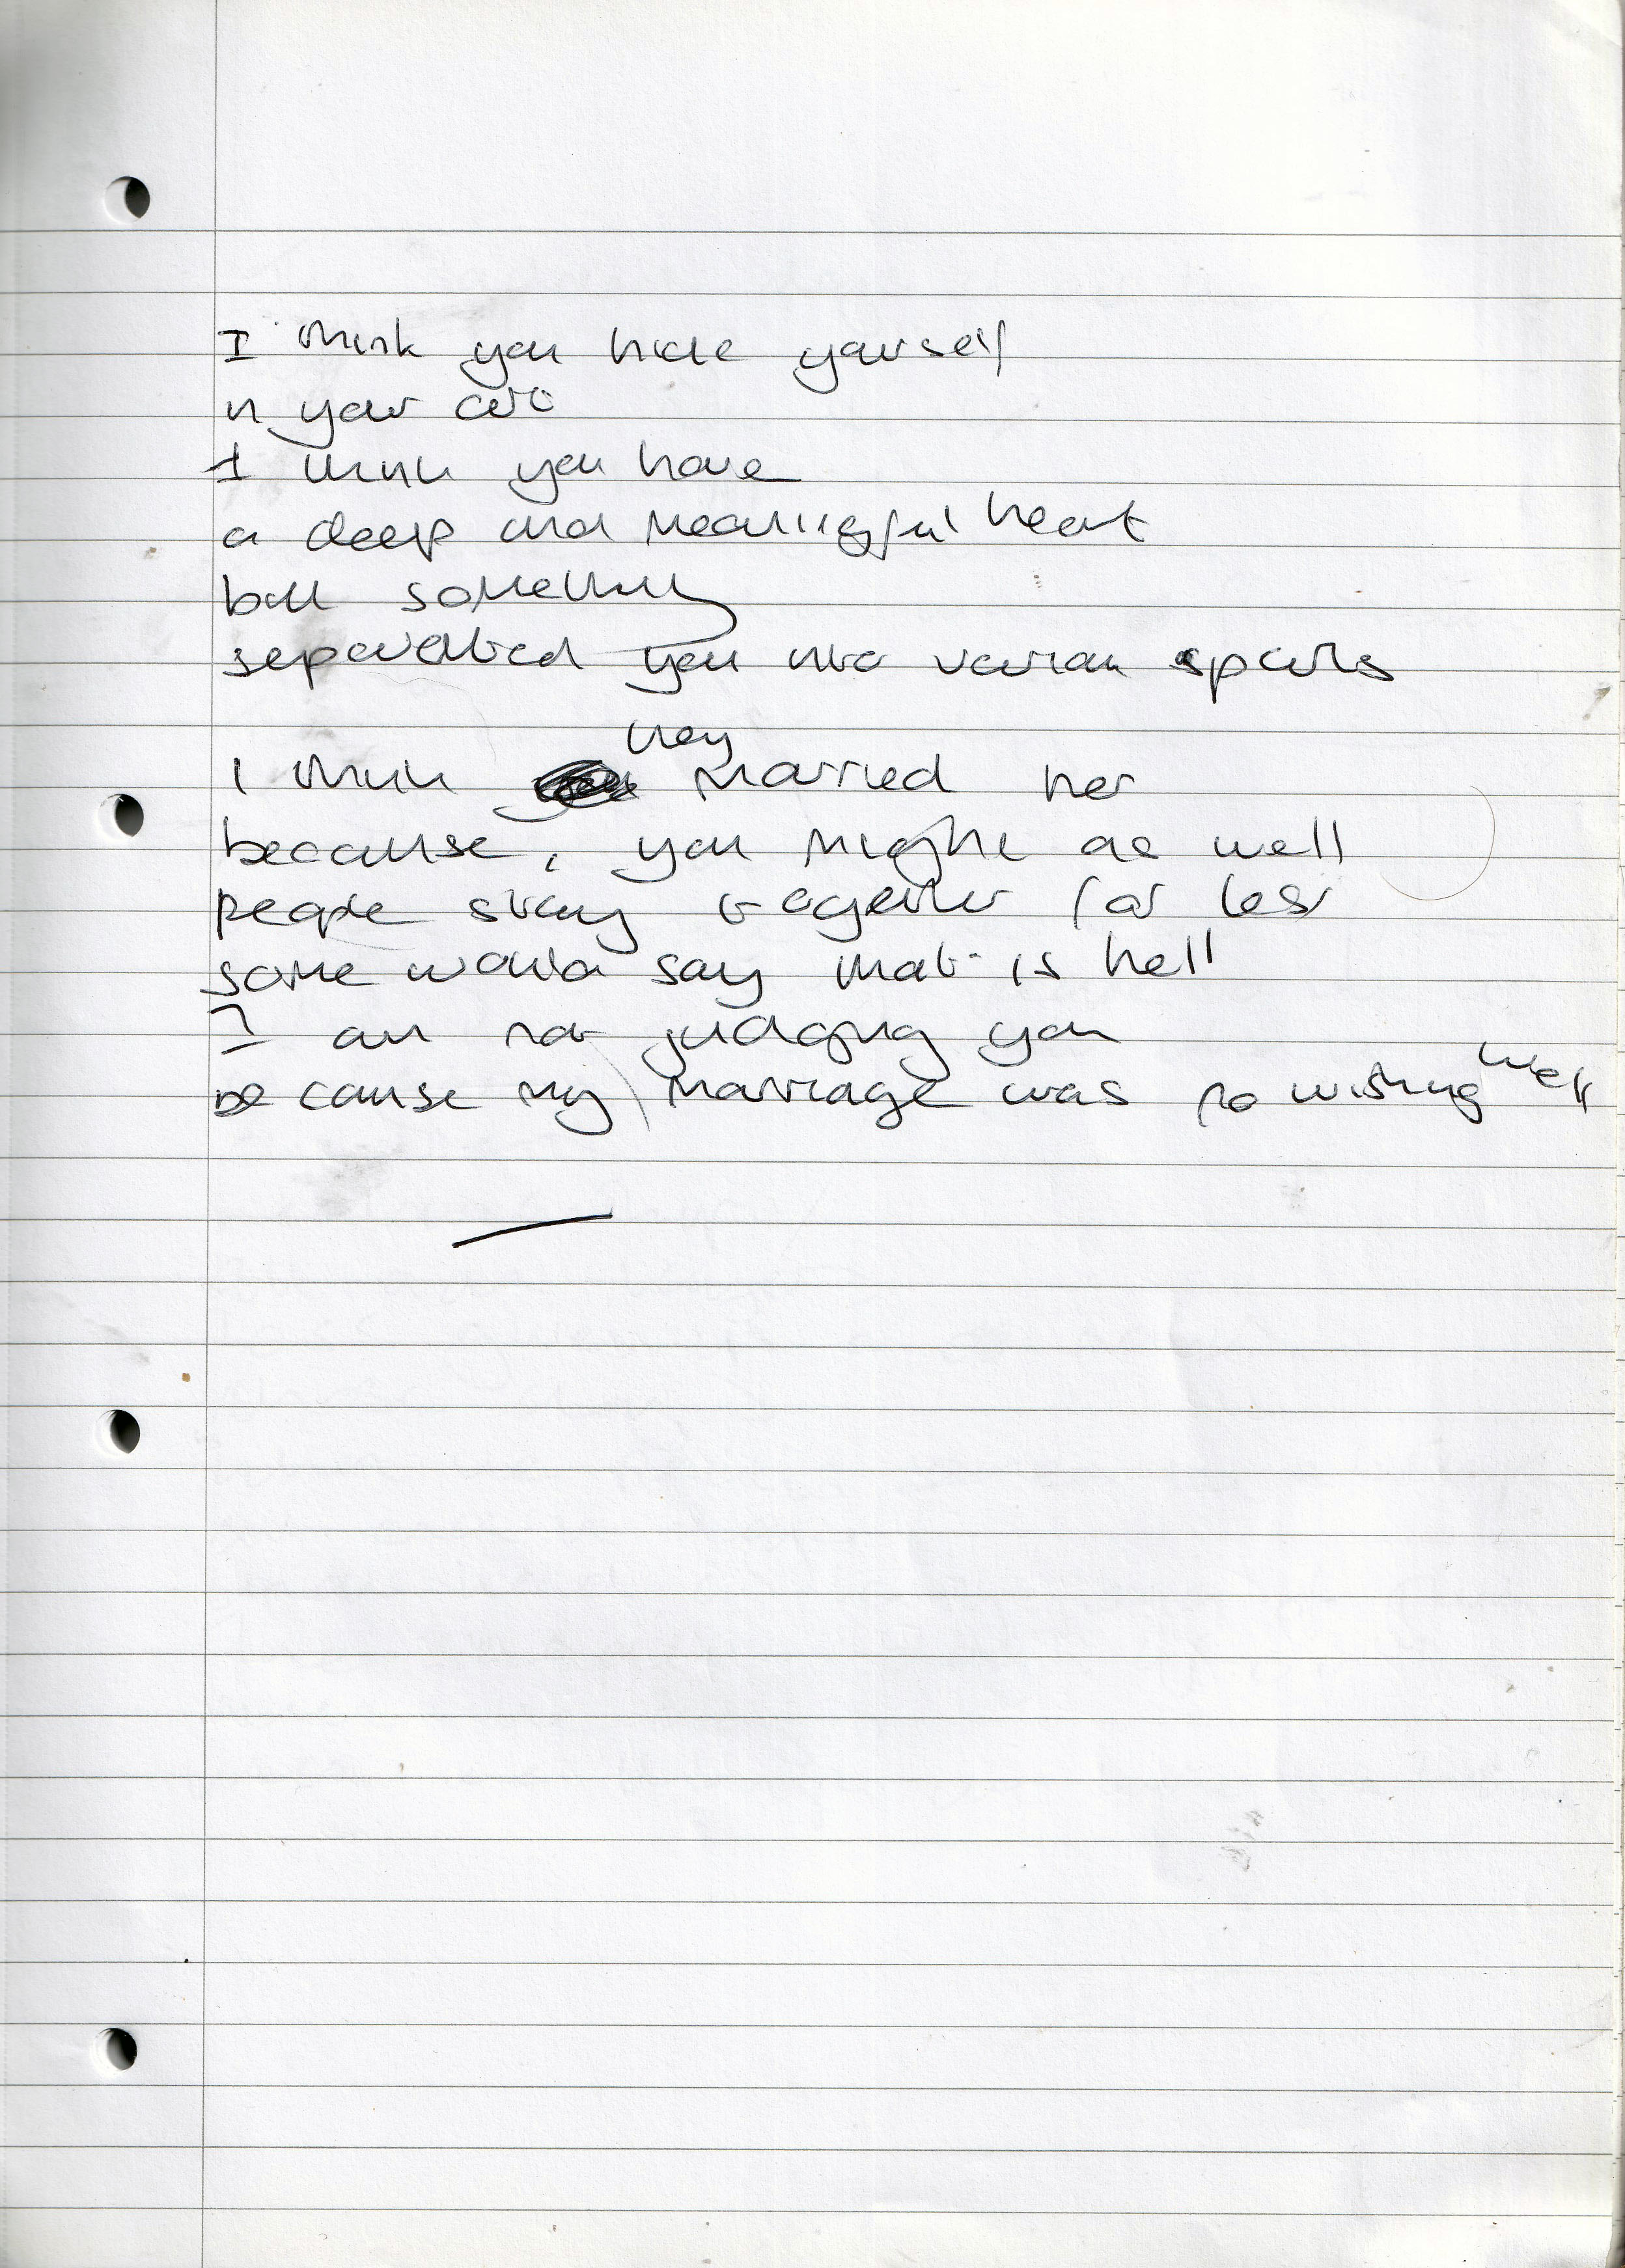 I think you hide yourself
in your art
I think you have
a deep and meaningful heart
but something
separated you into various parts
they
I think married her
because, you might as well
people stay together for less
some would say that is hell
I am not judging you
because my marriage was no wishing well